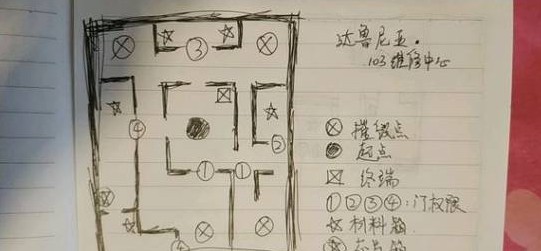 达鲁尼亚·
103维修中心
③
④
②
① ①
④
⊗ 摧毁点
● 起点
⊠ 终端
①②③④:门权限
☆ 材料箱